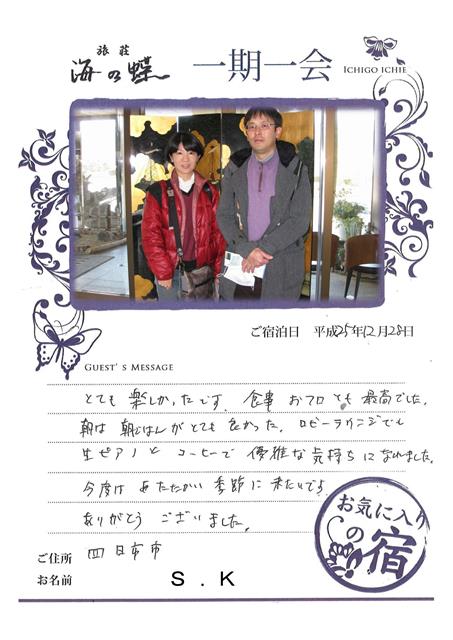 旅荘
海の蝶
一期一会
ICHIGO ICHIE
ご宿泊日 平成25年12月28日
GUEST'S MESSAGE
とても 楽しかったです、食事 お フロ とも 最高でした。
朝は 朝ごはんがとても 良かった。ロビーラウンジでも
生ピアノと コーヒーで 優雅な 気持ちに なれました。
今度は あたたかい 季節に 来たいです
ありがとう ございました。
お気に入り
の宿
ご住所 四日市市
お名前 S . K